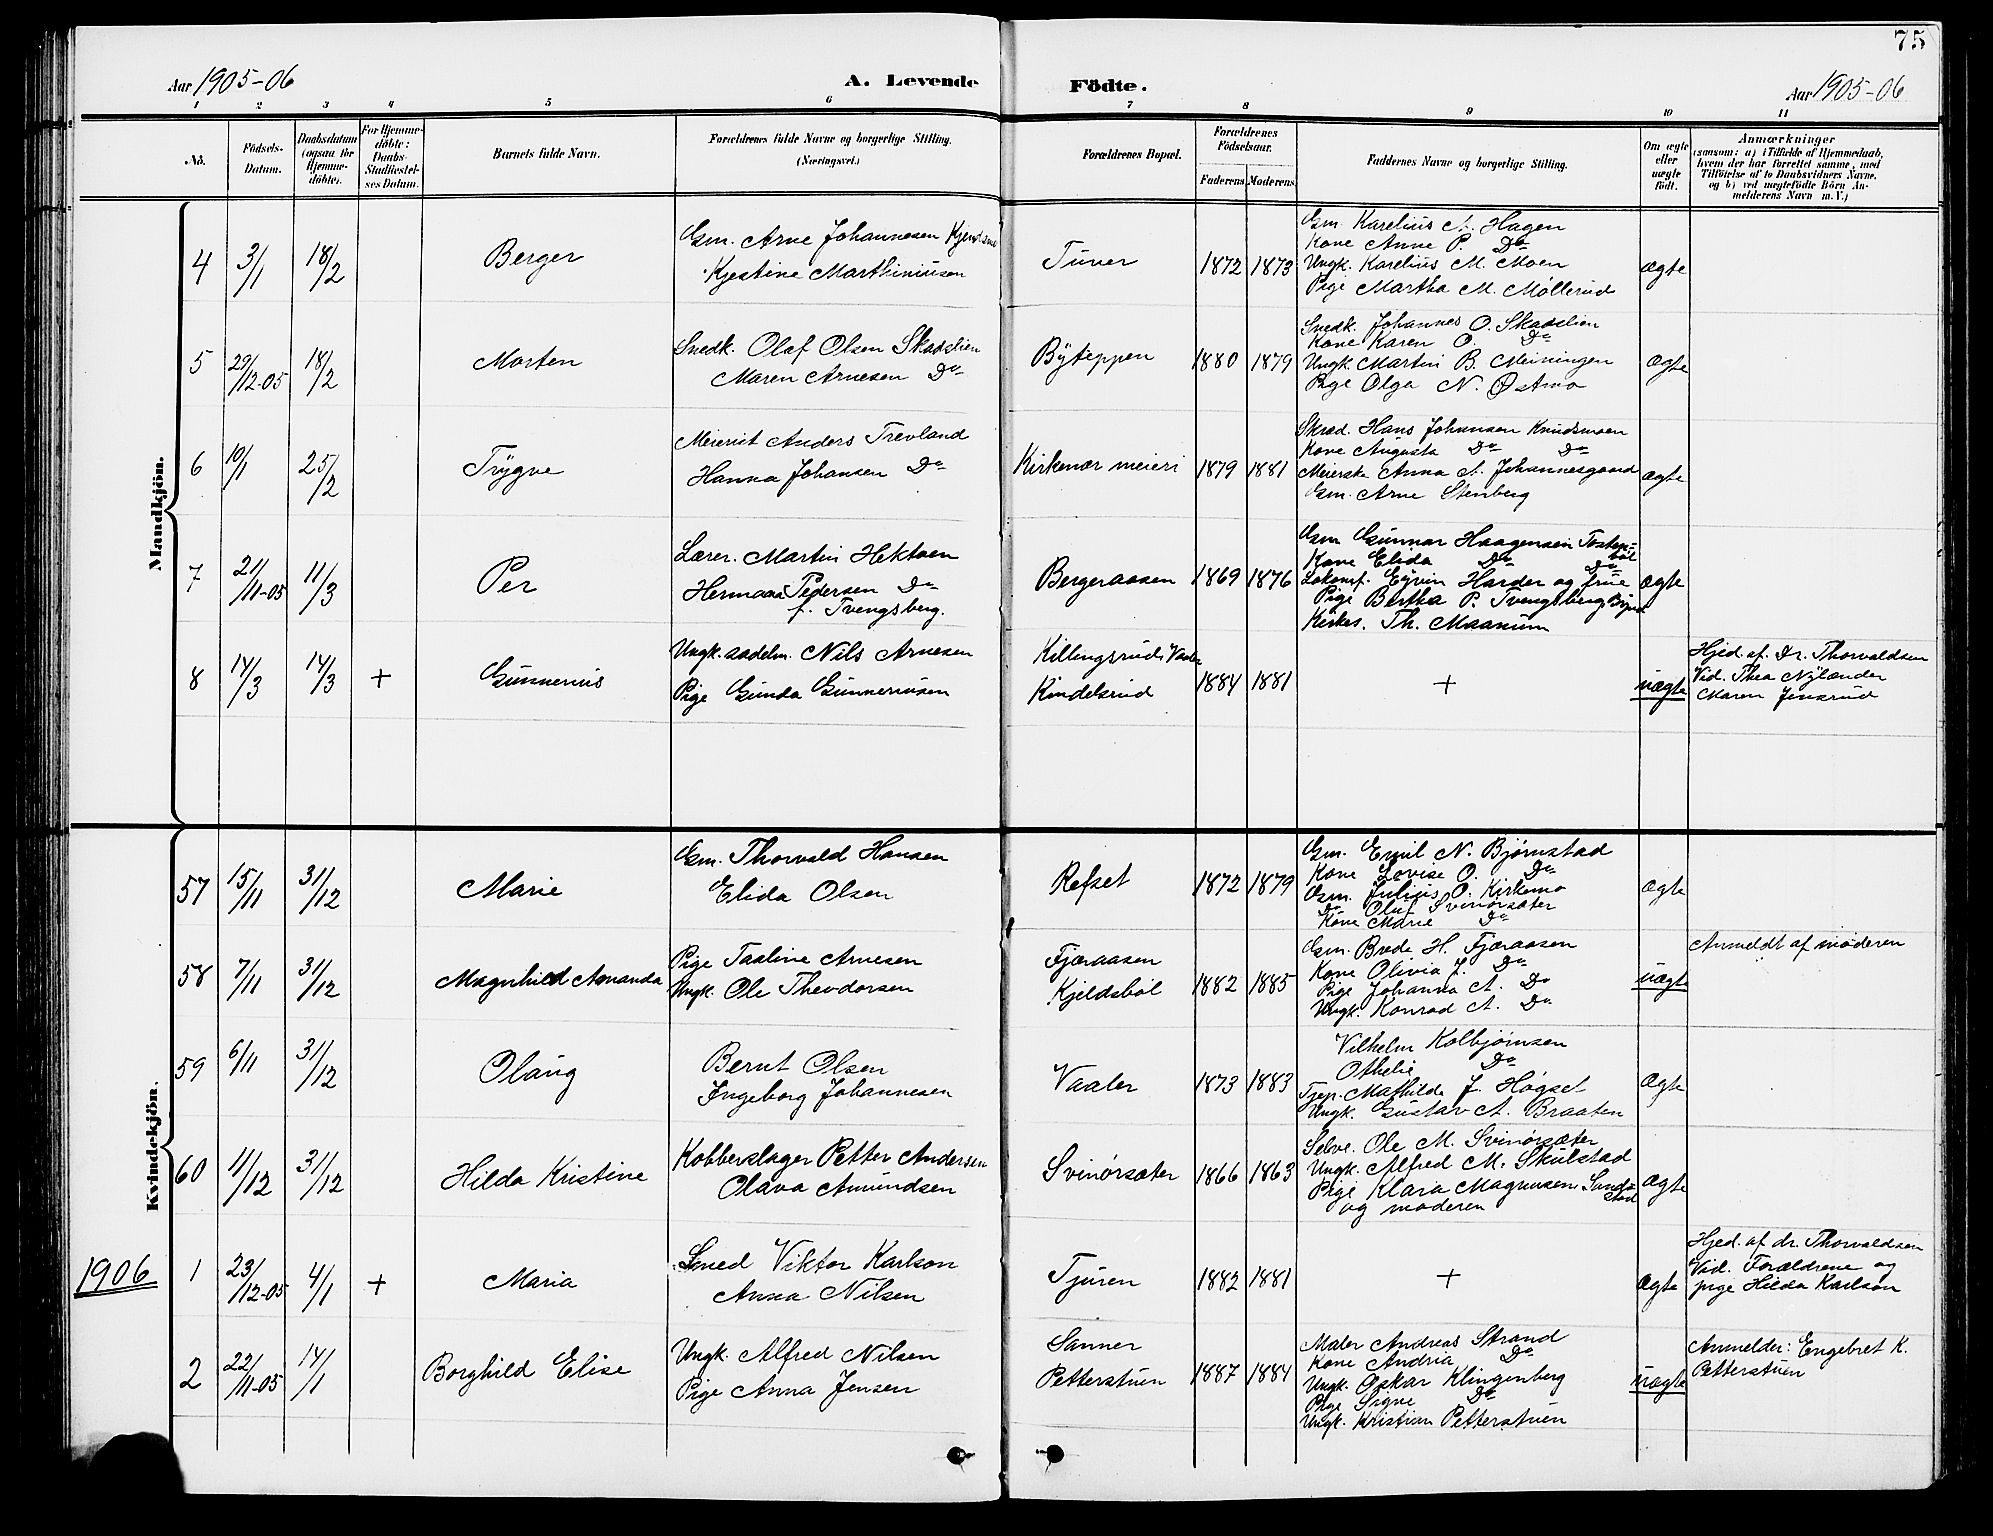 75
Aar 1905-06
A. Levende
Födte.
Aar 1905-06
1 2 3 4 5 6 7 8 9 10 11
No.
Födsels-
Datum.
Daabsdatum
(ogsaa for
Hjemme-
döbte).
For Hjemme-
döbte:
Daabs-
Stadfæstel-
ses Datum.
Barnets fulde Navn.
Forældrenes fulde Navne og borgerlige Stilling.
(Næringsvei.)
Forældrenes Bopæl.
Forældrenes
Födselsaar.
Faderens Moderens
Faddernes Navne og borgerlige Stilling.
Om ægte
eller
uægte
født.
Anmærkninger
(saasom: a) i Tilfælde af Hjemmedaab,
hvem der har forrettet samme, med
Tilföielse af to Daabsvidners Navne,
og b) ved uægtefödte Börn An-
melderens Navn m. V.)
Mandkjön.
4
3/1
18/2
Berger
Gm. Arne Johannesen
Kjestine Marthiniusen
Tuner
1872 1873
Gm. Karelius A. Hagen
Kone Anne P. Do
Ungk. Karelius M. Moen
Pige Martha M. Møllerud
ægte
5
29/12-05
18/2
Morten
Snedk. Olaf Olsen Skadslien
Maren Arnesen Do
Byteppen
1880 1879
Snedk. Johannes O. Skadslien
Kone Karen O. Do
Ungk. Martin B. Meiningen
Pige Olga N. Østmo
ægte
6
10/1
25/2
Trygve
Meierist Anders Trevland
Hanna Johansen Do
Kirkenær meieri
1879 1881
Skræd. Hans Johansen Knudsmoen
Kone Augusta Do Do
Meierske Anna A. Johannesgaard
Gm. Arne Stenberg
ægte
7
21/11-05
11/3
Per
Lærer. Martin Hektoen
Hermana Pedersen Do
f. Tvengsberg.
Bergeraasen
1869 1876
Gm Gunnar Haagensen Tostep-
böl
Kone Elida Do Do
Lokomf. Eyvin Harder og frue
Pige Bertha P. Tvengsberg
Kirkes. Th. Maanum
ægte
8
14/3
14/3
+
Gunnerius
Ungk. sadelm. Nils Arnesen
Pige Gunda Gunneriusen
Killingsrud, Vaaler
Kindelsrud
1884 1881
+
uægte
Hjed. af. Dr. Thorvaldsen
Vid. Thea Nylænder
Maren Jensrud
Kvindekjön.
57
15/11
31/12
Marie
Gm. Thorvald Hansen
Elida Olsen
Refset
1872 1879
Gm. Emil N. Bjørnstad
Kone Lovise O. Do
Gm. Julius O. Kirkemo
Do Oluf Svinørsæter
Kone Marie Do
ægte
58
7/11
31/12
Magnhild Amanda
Pige Taaline Arnesen
Ungk. Ole Theodorsen
Fjæraasen
Kjeldsböl
1882 1885
Gm. Brede H. Fjæraasen
Kone Olivia J. Do
Pige Johanna A. Do
Ungk. Konrad A. Do
uægte
Anmeldt af møderen
59
6/11
31/12
Olaug
Bernt Olsen
Ingeborg Johannesen
Vaaler
1873 1883
Vilhelm Kolbjørnsen
Othelie Do
Tjep. Mathilde J. Høgset
Ungk. Gustav A. Braaten
ægte
60
11/12
31/12
Hilda Kristine
Kobberslager Petter Andersen
Olava Amundsen
Svinørsæter
1866 1863
Selve. Ole M. Svinørsæter
Ungk. Alfred M. Skulstad
Pige Klara Magnusen Sund-
stad
og moderen
ægte
1906
1
23/12-05
4/1
+
Maria
Smed Viktor Karlson
Anna Nilsen
Tjuren
1882 1881
+
ægte
Hjed. af dr. Thorvaldsen
Vid. Forældrene og
pige Hilda Karlson
2
22/11-05
14/1
Borghild Elise
Ungk. Alfred Nilsen
Pige Anna Jensen
Sanner
Petterstuen
1887 1884
Maler Andreas Strand
Kone Andria Do
Ungk. Oskar Klingenberg
Pige Signe Do
Ungk. Kristian Petterstuen
uægte
Anmelder: Engebret K.
Petterstuen